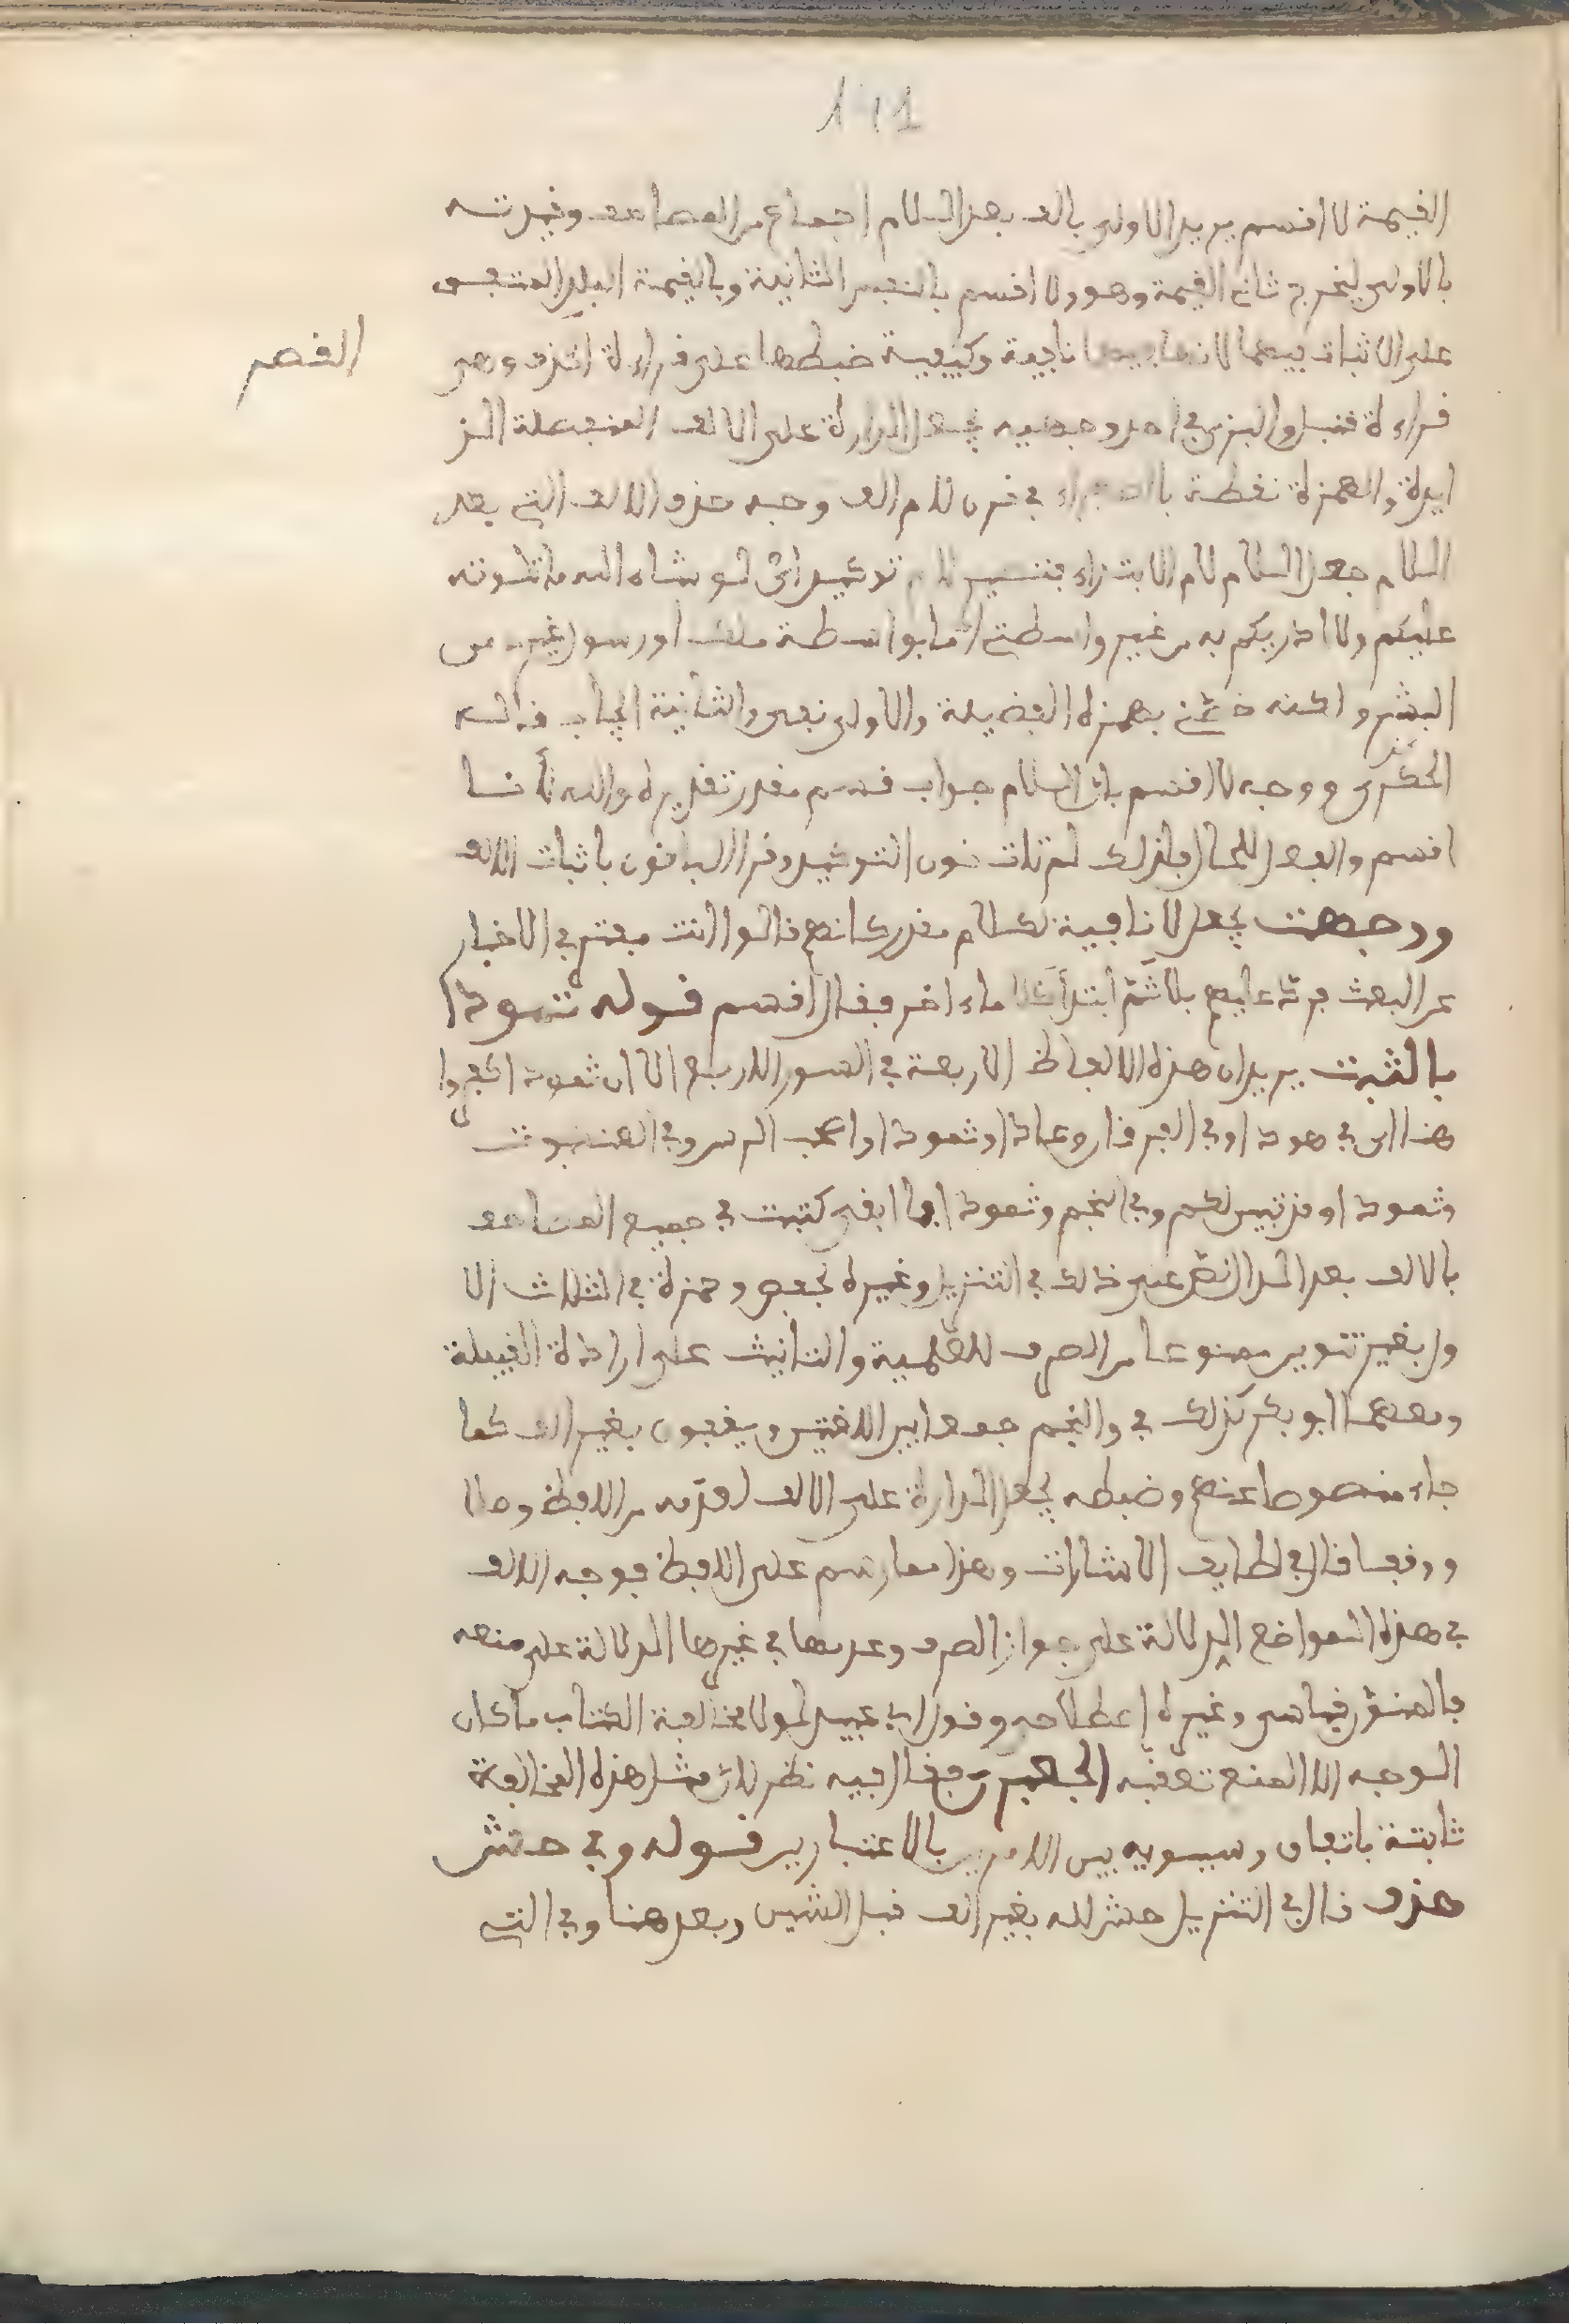 القيمة لا اقسم يريد الاولى بالف بعد اللام اجماع من المصاحف وقيدته
بالاولى ليخرج ثاني القيمة وهو ولا اقسم بالنفس الثانية وبالقيمة البلد المتفق
على الاثبات فيهما لانها فيهما نافية وكيفية ضبطها على قراءة الحذف وهى
القصر
قراءة قنبل والبزى في احد وجهيه بجعل الدارة على الالف المنفصلة الز
ايدة والهمزة نقطة بالصفراء في قرن لام الف وجه حذف الالف التي بعد
اللام جعل اللام لام الابتداء فتصير لام توكيد اى لو شاء الله ما تلوته
عليكم ولا ادريكم به من غير واسطتي اما بواسطة ملك او رسول غيري من
البشر ولكنه خصني بهذه الفضيلة والاولى نفى والثانية ايجاب قاله
العكبرى ووجه لا اقسم بان اللام جواب قسم مقدر تقديره والله لأنا
اقسم والفعل للحال فلذلك لم تات نون التوكيد وقرا الباقون باثبات الالف
ووجهت بجعل لا نافية لكلام مقدر كانهم قالوا انت مفتر في الاخبار
عن البعث فرد عليهم بلا ثم ابتدأ كلاما اخر فقال اقسم قوله ثمودا
بالثبت يريد ان هذه الالفاظ الاربعة في السور الاربع الا ان ثمودا كفروا
هنا اى في هود او في الفرقان وعادا وثمودا واصحب الرس وفي العنكبوت
وثمودا وقد تبين لكم وفي النجم وثمودا فما ابقى كتبت في جميع المصاحف
بالالف بعد الدال نص على ذلك في التنزيل وغيره لحفص وحمزة في الثلاث الا
ول بغير تنوين ممنوعا من الصرف للعلمية والتانيث على ارادة القبيلة
ومعهما ابو بكر كذلك في والنجم جمعا بين اللغتين ويقفون بغير الف كما
جاء منصوصا عنهم وضبطه بجعل الدارة على الالف لعدمه من اللفظ وصلا
ووقفا قال في لطايف الاشارات وهذا مما رسم على اللفظ فوجه الالف
في هذه المواضع الدلالة على جواز الصرف وعدمها في غيرها الدلالة على منعه
فالمنون قياسى وغيره اصطلاحى وقول ابي عبيد لولا مخالفة الكتاب ما كان
الوجه الا المنع تعقبه الجعبرى فقال فيه نظر لان مثل هذه المخالفة
ثابتة باتفاق وسيبويه بين الامرين بالاعتبارين قوله وفي حش
حذف قال في التنزيل حش لله بغير الف قبل الشين وبعد هنا وفي الته